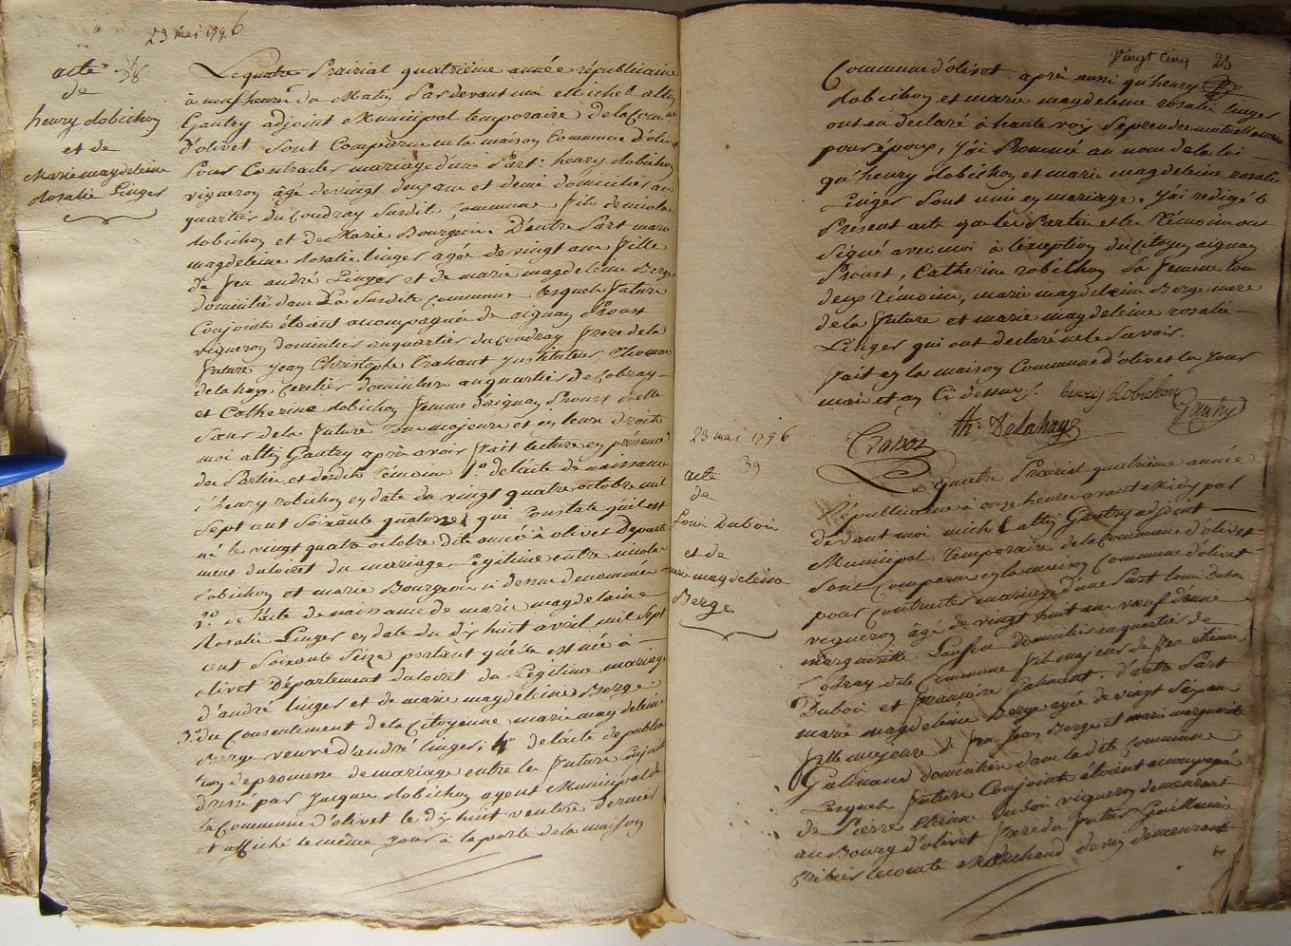 23 mai 1796
acte
38
de
henry Robichon
et de
Marie magdeleine
Rosalie Linger
Le quatre Prairial quatrième année républicaine
à neuf heures du Matin Pardevant moi Michel altin
Gautry adjoint Municipal temporaire de la Commune
d'olivet Sont Comparus en la maison Commune d'olivet
Pour Contracter mariage d'une Part henry Robichon
vigneron âgé de vingt deux ans et demi domicilié au
quartier du Coudray Susdite Commune fils de nicolas
Robichon et de Marie Bourgeois. D'autre Part marie
magdeleine Rosalie Linger agée de vingt ans fille
de feu andré Linger et de marie magdeleine Berge
domiciliée dans La Susdite Commune Lesquels futurs
Conjoints étoient accompagnés de aignan Proust
vigneron domicilié au quartier du Coudray frere de la
future jean Christophe Crabant Instituteur Thomas
delahaye domicilier au quartier de Cobray
et Catherine Robichon femme d'aignan Proust
Sœur de la future tous majeurs et en leurs droits
moi altin Gautry après avoir fait lecture en présence
des Parties et desdits témoins 1° de l'acte de naissance
d'henry robichon en date du vingt quatre octobre mil
Sept cent Soixante quatorze qui Constate qu'il est
né le vingt quatre octobre dite année à olivet Départe
ment du loiret du mariage Légitime entre nicolas
Robichon et marie Bourgeois ci dessus dénommés
2° de l'acte de naissance de marie magdelaine
Rosalie Linger en date du dix huit avril mil Sept
cent Soixante Seize portant qu'elle est née à
olivet Département du loiret du Légitime mariage
d'andré linger et de marie magdeleine Berge
3° du Consentement de la Citoyenne marie magdeleine
Berge veuve d'andré linger; 4° de l'acte de publica
tion de promesse de mariage entre les futurs conjoints
dressé par jacques Robichon agent Municipal de
la Commune d'olivet le dix huit ventôse dernier
et affiché le même jour à la porte de la maison
Vingt Cinq 25
Commune d'olivet après aussi qu'henry
Robichon et marie magdeleine rosalie linger
ont eu déclaré à haute voix Se prendre mutuellement
pour époux, j'ai Prononcé au nom de la loi
qu'henry Robichon et marie magdeleine rosalie
Linger Sont unis en mariage. j'ai redigé le
Présent acte que les Parties et les Témoins ont
Signé avec moi à l'exception du Citoyen aignan
Proust Catherine robichon Sa femme tous
deux témoins, marie magdeleine Berge mere
de la future et marie magdeleine rosalie
Linger qui ont declaré ne le Savoir.
fait en la maison Commune d'olivet les jour
mois et an Ci dessus. henry Robichon
Gautry
th. Delahaye
Crabant
23 mai 1796
39
acte
de
Louis Dubois
et de
marie magdeleine
Berge
Le quatre Prairial quatrième année
Républicaine à onze heures avant Midy par
devant moi michel altin Gautry adjoint
Municipal temporaire de la Commune d'olivet
Sont Comparus en la maison Commune d'olivet
pour Contracter mariage d'une Part louis Dubois
vigneron âgé de vingt huit ans veuf d'anne
marguerite domicilier au quartier de
Cobray dite Commune fils majeur de feu étienne
Duboi et D'autre Part
marie magdeleine Berge agée de vingt Sept ans
fille majeure de feu Jean Berge et marie marguerite
Gatineau domiciliée dans la dite Commune
Lesquels futurs Conjoints étoient accompagnés
de Pierre Etienne Duboi vigneron demeurant
au Bourg d'olivet frere du futur Guillaume
lecomte Marchand demeurant